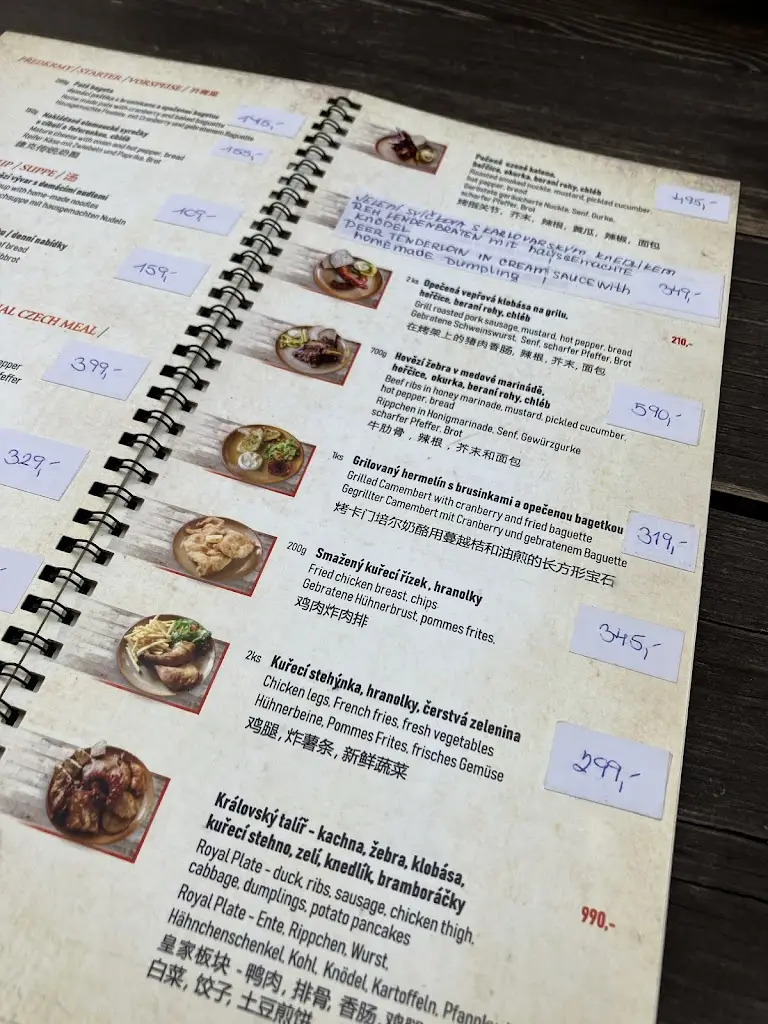 PŘEDKRMY / STARTER / VORSPEISE / 开胃菜
Paté bageta
Home made paté with cranberry and baked baguette
145,-
150g Nakládané olomoucké syrečky
s cibulí a feferonkou, chléb
Mature cheesy with onion and hot pepper, bread
Reifer Käse mit Zwiebeln und Paprika, Brot
155,-
/ SUPPE / 汤
vývar s domácími nudlemi
up with home-made noodles
mit hausgemachten Nudeln
109,-
/ denní nabídky
of bread
159,-
AL CZECH MEAL /
epper
feffer
399,-
329,-
Pečené uzené koleno,
hořčice, okurka, beraní rohy, chléb
Roasted smoked knuckle, mustard, pickled cucumber,
hot pepper, bread
Geröstete geräucherte Nuckle, Senf, Gurke,
烤指关节，芥末，辣根，黄瓜，辣椒，面包
495,-
JELENÍ SVÍČKOVÁ S KARLOVARSKÝM KNEDLÍKEM
REH LENDENBRATEN mit hausgemachte
KNÖDEL
DEER TENDERLOIN IN CREAM SAUCE with
homemade Dumpling
349,-
2ks Opečená vepřová klobása na grilu,
hořčice, beraní rohy, chléb
Grill roasted pork sausage, mustard, hot pepper, bread
Gebratene Schweinswurst, Senf, scharfer Pfeffer, Brot
在烤架上的猪肉香肠, 辣根, 芥末, 面包
210,-
700g Hovězí žebra v medové marinádě,
hořčice, okurka, beraní rohy, chléb
Beef ribs in honey marinade, mustard, pickled cucumber,
hot pepper, bread
Rippchen in Honigmarinade, Senf, Gewürzgurke
scharfer Pfeffer, Brot
牛肋骨，辣根，芥末和面包
590,-
1ks Grilovaný hermelín s brusinkami a opečenou bagetkou
Grilled Camembert with cranberry and fried baguette
Gegrillter Camembert mit Cranberry und gebratenem Baguette
烤卡门培尔奶酪用蔓越桔和油煎的长方形宝石
319,-
200g Smažený kuřecí řízek, hranolky
Fried chicken breast, chips
Gebratene Hühnerbrust, pommes frites,
鸡肉炸肉排
345,-
2ks Kuřecí stehýnka, hranolky, čerstvá zelenina
Chicken legs, French fries, fresh vegetables
Hühnerbeine, Pommes Frites, frisches Gemüse
鸡腿, 炸薯条, 新鲜蔬菜
299,-
Královský talíř - kachna, žebra, klobása,
kuřecí stehno, zelí, knedlík, bramboráčky
Royal Plate - duck, ribs, sausage, chicken thigh,
cabbage, dumplings, potato pancakes
Royal Plate - Ente, Rippchen, Wurst,
Hähnchenschenkel, Kohl, Knödel, Kartoffeln, Pfann
皇家板块 - 鸭肉, 排骨, 香肠, 鸡腿
白菜, 饺子, 土豆煎饼
990,-